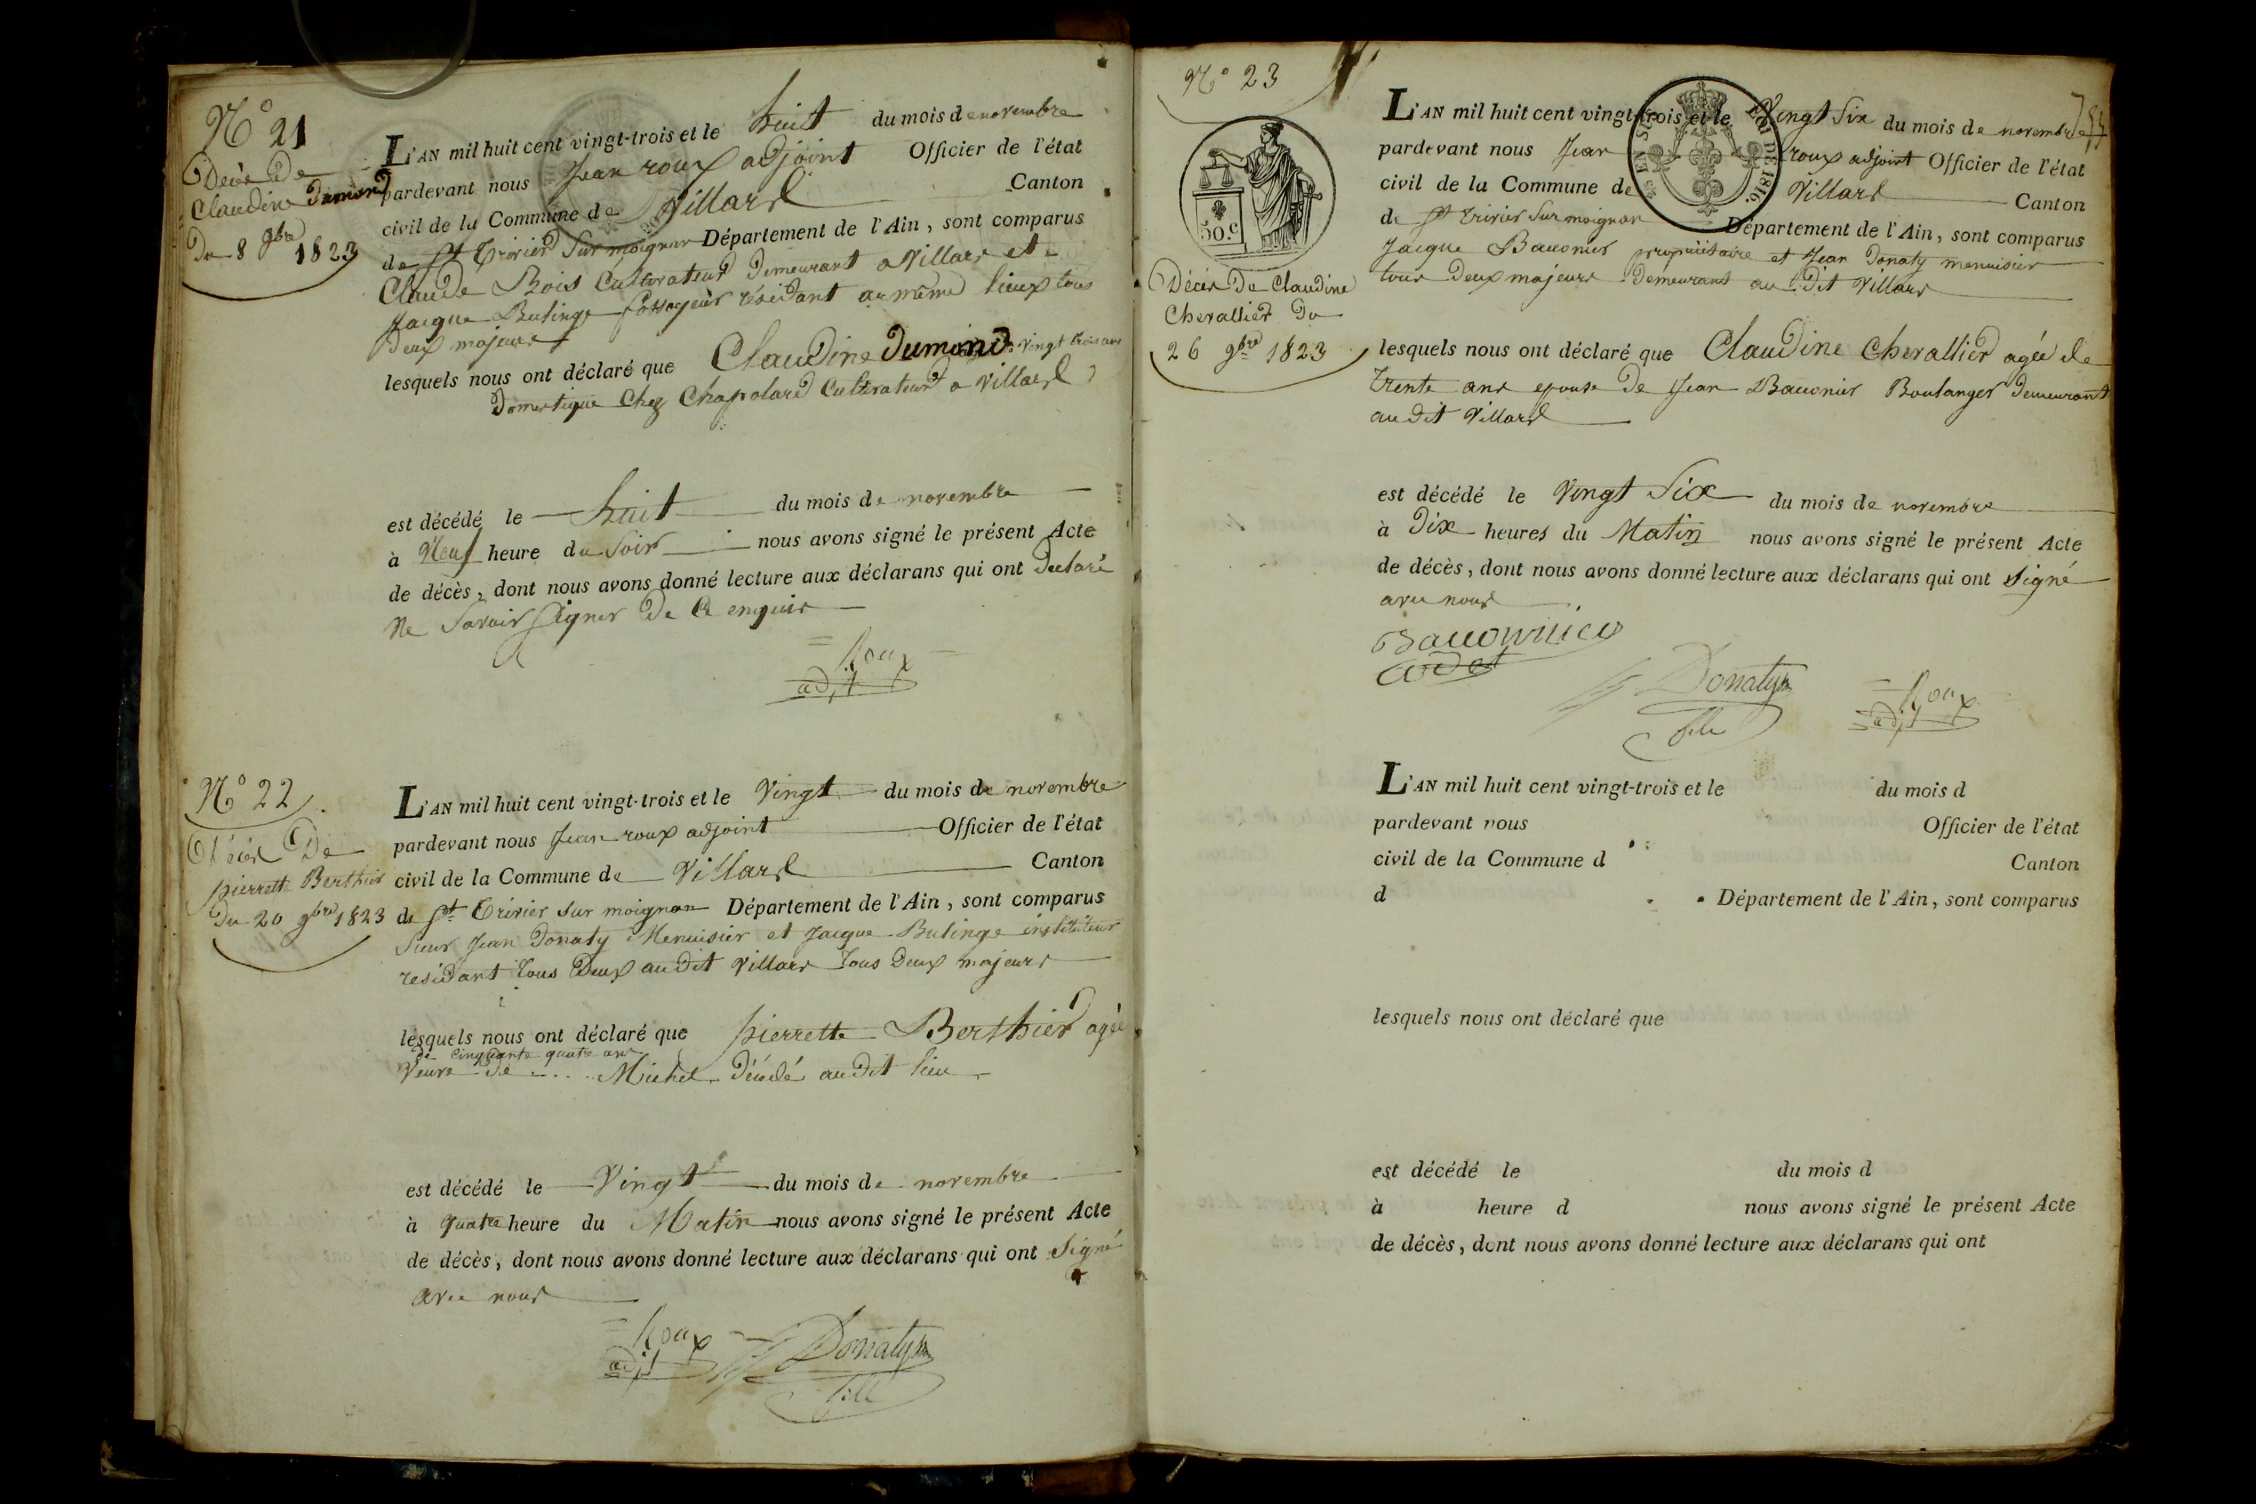 N° 21
Décès De
Claudine Dumond
Du 8 9bre 1823
L'AN mil huit cent vingt-trois et le huit du mois de novembre
pardevant nous Jean roux adjoint Officier de l'état
civil de la Commune de Villard Canton
de St Trivier Sur moignan Département de l'Ain, sont comparus
Claude Bois Cultivateur Demeurant a Villars et
Jacque Bulinge fossoyeur résidant au même lieux tous
Deux majeurs
lesquels nous ont déclaré que Claudine Dumond vingt trois ans
Domestique Chez Chapolard Cultivateur a Villard
est décédé le huit du mois de novembre
à Neuf heure du Soir nous avons signé le présent Acte
de décès, dont nous avons donné lecture aux déclarans qui ont Déclaré
Ne Savoir Signer De Ce enquis
Roux
adjt
N° 22
Décès De
pierrette Berthier
Du 20 9bre 1823
L'AN mil huit cent vingt-trois et le Vingt du mois de novembre
pardevant nous Jean roux adjoint Officier de l'état
civil de la Commune de Villard Canton
de St Trivier Sur moignan Département de l'Ain, sont comparus
Sieur Jean Donaty Menuisier et Jacque Bulinge instituteur
residant tous Deux au Dit Villars Tous Deux majeurs
lesquels nous ont déclaré que pierrette Berthier agée
de cinquante quatre ans
Veuve De .... Michel Décédé au Dit lieu
est décédé le Vingt du mois de novembre
à quatre heure du Matin nous avons signé le présent Acte
de décès, dont nous avons donné lecture aux déclarans qui ont Signé
avec nous
Roux
adjt
Donaty
fils
N° 23
50.c
Décès De Claudine
Chevallier Du
26 9bre 1823
L'AN mil huit cent vingt-trois et le Vingt Six du mois de novembre
LOI DE 1816.
pardevant nous Jean roux adjoint Officier de l'état
civil de la Commune de Villard Canton
de St Trivier Sur moignan Département de l'Ain, sont comparus
Jacque Bauonier propriétaire et Jean Donaty menuisier
tous Deux majeurs Demeurant au Dit Villars
lesquels nous ont déclaré que Claudine Chevallier agée de
Trente ans epouse De Jean Bauonier Boulanger Demeurant
au Dit Villard
est décédé le Vingt Six du mois de novembre
à Dix heures du Matin nous avons signé le présent Acte
de décès, dont nous avons donné lecture aux déclarans qui ont Signé
avec nous
Donaty
fils
Roux
adjt
L'AN mil huit cent vingt-trois et le du mois d
pardevant nous Officier de l'état
civil de la Commune d Canton
d Département de l'Ain, sont comparus
lesquels nous ont déclaré que
est décédé le du mois d
à heure d nous avons signé le présent Acte
de décès, dont nous avons donné lecture aux déclarans qui ont